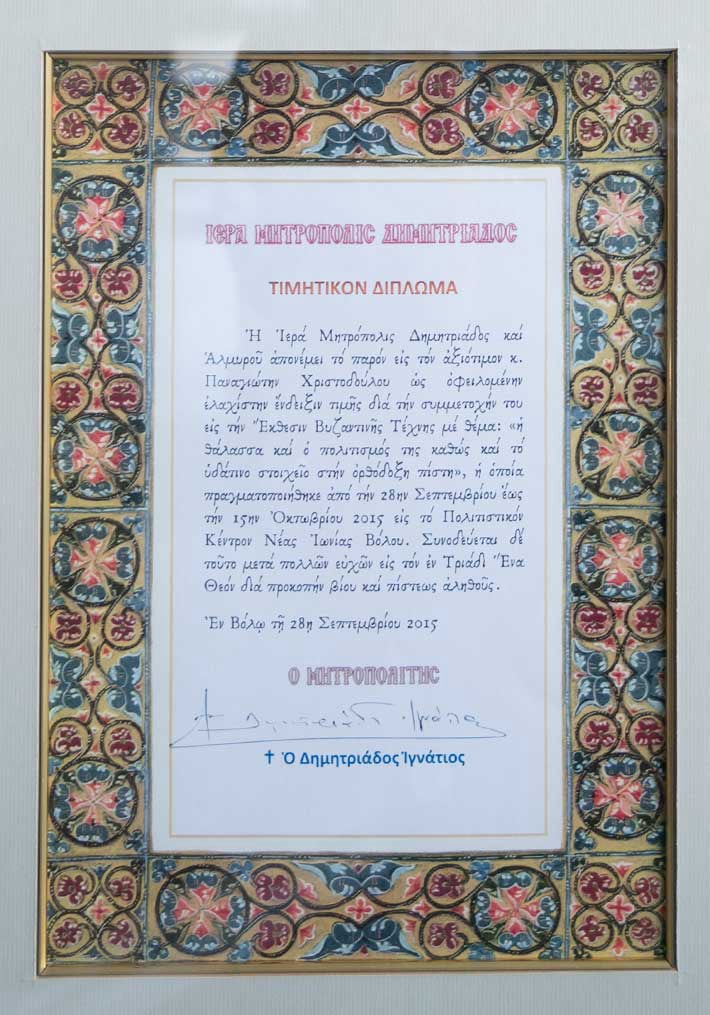 ΙΕΡΑ ΜΗΤΡΟΠΟΛΙΣ ΔΗΜΗΤΡΙΑΔΟΣ
ΤΙΜΗΤΙΚΟΝ ΔΙΠΛΩΜΑ
Ἡ Ἱερά Μητρόπολις Δημητριάδος καί
Ἁλμυροῦ ἀπονέμει τό παρόν εἰς τόν ἀξιότιμον κ.
Παναγιώτην Χριστοδούλου ὡς ὀφειλομένην
ἐλαχίστην ἔνδειξιν τιμῆς διά τήν συμμετοχήν του
εἰς τήν Ἔκθεσιν Βυζαντινῆς Τέχνης μέ θέμα: «ἡ
θάλασσα καί ὁ πολιτισμός της καθώς καί τό
ὑδάτινο στοιχεῖο στήν ὀρθόδοξη πίστη», ἡ ὁποία
πραγματοποιήθηκε ἀπό τήν 28ην Σεπτεμβρίου ἕως
τήν 15ην Ὀκτωβρίου 2015 εἰς τό Πολιτιστικόν
Κέντρον Νέας Ἰωνίας Βόλου. Συνοδεύεται δέ
τοῦτο μετά πολλῶν εὐχῶν εἰς τόν ἐν Τριάδι Ἕνα
Θεόν διά προκοπήν βίου καί πίστεως ἀληθοῦς.
Ἐν Βόλῳ τῇ 28ῃ Σεπτεμβρίου 2015
Ο ΜΗΤΡΟΠΟΛΙΤΗΣ
† Ὁ Δημητριάδος Ἰγνάτιος